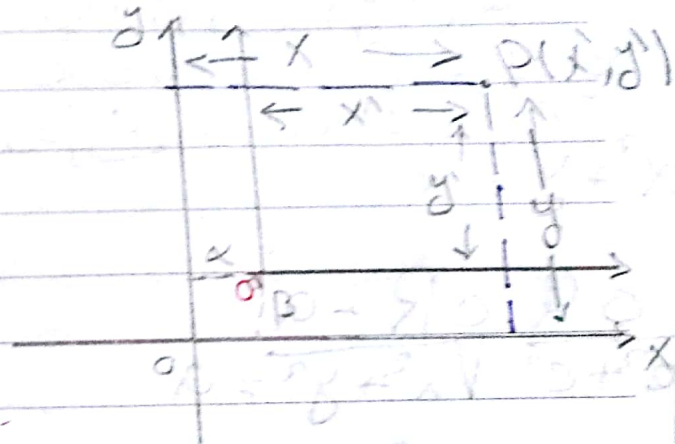 y
X P(x',y')
x'
y' y
α
o'
B
o X